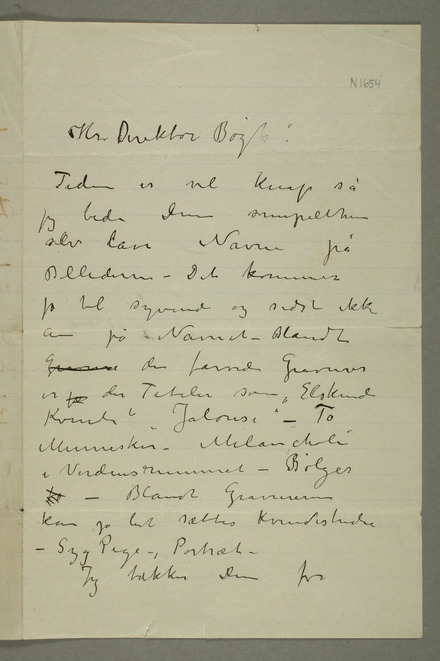 N 1654
Hr. Direktor Bøgh!
Tiden er vel knap så
jeg beder Dem simpelthen
selv lave Navne på
Billederne – Det kommer
jo til syvende og sidst ikke
an på Navnet – Blandt
de farvede Gravurer
er der Titeler som „Elskende
Kvinde“ „Jalousi“ – To
Mennesker – Melancholi
i Verdensrummet – Bølger
– Blandt Gravurerne
kan jo let sættes Kvindestudie
– Syg Pige –, Portræt –
Jeg takker Dem for